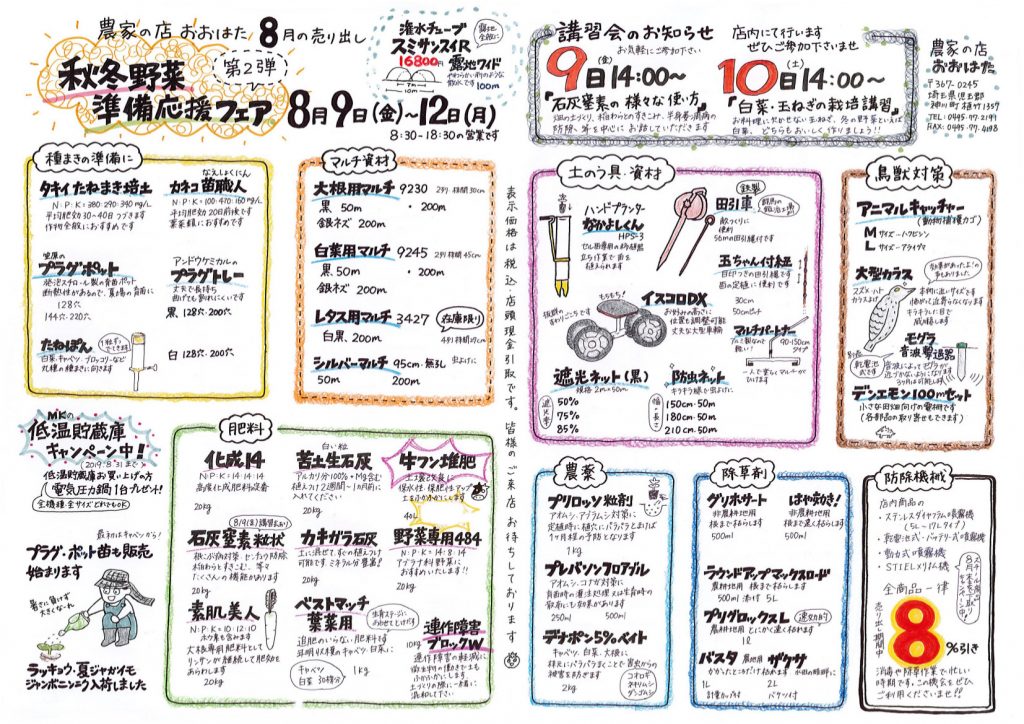 農家の店 おおはた 8月の売り出し
第2弾
秋冬野菜
準備応援フェア
8月9日(金)〜12日(月)
8:30-18:30の営業です
潅水チューブ
スミサンスイR
16800円 露地ワイド
やわらかい雨のような
散水です
100m
講習会のお知らせ
お気軽にご参加下さい
店内にて行います
ぜひご参加下さいませ
9日(金)14:00〜
『石灰窒素の様々な使い方』
10日(土)14:00〜
『白菜・玉ねぎの栽培講習』
お料理に欠かせない玉ねぎ、冬の野菜といえば
白菜、どちらもおいしく作りましょう!!
農家の店
おおはた
〒367-0245
埼玉県児玉郡
神川町植竹1357
TEL: 0495-77-2199
FAX: 0495-77-2198
種まきの準備に
タキイ たねまき培土
N・P・K=380・290・340mg/L
平均肥効30〜40日つづきます
作物全般におすすめです
なえしょくにん
カネコ 苗職人
N・P・K=100・470・160mg/L
平均肥効20日前後です
葉菜類におすすめです
プラグポット
発泡スチロール製の育苗ポット
断熱性があるので、夏場の育苗に
128穴
144穴・220穴
アンドウケミカルの
プラグトレー
丈夫で長持ち
曲げても割れにくいです
黒、(128穴・200穴)
白 (128穴・200穴)
たねぽん
白菜、キャベツ、ブロッコリーなど
丸種の種まきに向きます
マルチ資材
大根用マルチ 9230 2列 株間30cm
黒 50m ・200m
銀ネズ 200m
白菜用マルチ 9245 2列 株間45cm
黒 50m ・200m
銀ネズ 200m
レタス用マルチ 3427 在庫限り
白黒、200m 4列 株間27cm
シルバーマルチ 95cm・無孔 虫よけに
50m 200m
表示価格は税込・店頭現金引取です。皆様のご来店お待ちしております
土のう具・資材
ハンドプランター
なかよしくん
HPS-3
立ち作業で苗を
植えられます
鉄製
田引車
畝づくりに
便利
56mの田引縄付です
玉ちゃん付紐
目印つきの田引縄です
苗の定植に便利です
30cm
50mピッチ
イスコロDX
お好みの高さに
位置も調整可能
丈夫な大型車輪
マルチパートナー
アルミ製なので
軽い!
90-150cm
タイプ
一人で楽らくマルチが
ひけます
遮光ネット(黒)
規格 2m×50m
遮光率
50%
75%
85%
防虫ネット
キラキラ線で虫よけに
幅・長さ
150cm・50m
180cm・50m
210cm・50m
鳥獣対策
アニマルキャッチャー
(動物捕獲カゴ)
Mサイズ…ハクビシン
Lサイズ…アライグマ
大型カラス
スズメ・ハト
カラスよけ
本物に近いサイズです
怖がって近寄らなくなります
キラキラした目で
威嚇します
モグラ
音波撃退器
乾電池
式です
デンエモン100mセット
小さな田畑向けの電柵です
(各部品の取り寄せもできます)
MKの
低温貯蔵庫
キャンペーン中!
(2019.8.31まで)
低温貯蔵庫お買い上げの方
電気圧力鍋1台プレゼント!
全機種・全サイズどれでもOK
最初はキャベツから!
プラグ・ポット苗も販売
始まります
暑さに負けず
大きくな〜れ
ラッキョウ・夏ジャガイモ
ジャンボニンニク入荷しました
肥料
化成14
N・P・K=14・14・14
高度化成肥料の定番
20kg
白い粒
苦土生石灰
アルカリ分100%+Mg含む
植えつけ2週間〜1か月前に
入れてください
20kg
牛フン堆肥
土壌改良に
保水性・保肥性アップ
土をふかふかにします
40L
8/9(金)講習あり
石灰窒素粒状
根こぶ病対策・センチュウ防除
稲わらのすきこみ、等々
たくさんの機能があります
20kg
カキガラ石灰
土に混ぜてすぐの植えつけ
可能です ミネラル分豊富!
20kg
野菜専用484
N・P・K=14・8・14
アブラナ科野菜に
おすすめいたします!!
20kg
素肌美人
N・P・K=10・12・10
ホウ素も含みます
大根専用肥料として
リン酸が持続して肥効を
あらわします
20kg
ベストマッチ
葉菜用
追肥のいらない肥料です
年明けどりの(キャベツ・白菜)に
キャベツ
白菜 30株分
1kg
連作障害
ブロックW
10kg
連作障害の軽減に
微生物の働きで土を
ふかふかにします
土づくりの際に一緒に
混和して下さい
農薬
プリロッソ粒剤
アオムシ、アザミウマ対策に
定植時に、植穴にパラパラとまけば
1ヶ月程の予防となります
1kg
プレバソンフロアブル
アオムシ、コナガ対策に
育苗時の灌注処理又は生育時の
散布にも効果があります
250ml 500ml
デナポン5%ベイト
キャベツ、白菜、大根に
株元にバラバラまくことで害虫からの
被害を防ぎます
2kg
コオロギ
ネキリムシ
ダンゴムシ
除草剤
グリホサート
非農耕地用
根まで枯らします
500ml
はや効き!
非農耕地用
根まで速く枯らします
500ml
ラウンドアップマックスロード
農耕地用 根まで枯らします
500ml 添付 5L
プリグロックスL 速効的
農耕地用 とにかく速く枯れます
1L
バスタ
農地用
1L
計量カップ付
ザクサ
2L
バケツ付
防除機械
店内商品の
・ステンレスダイヤフラム噴霧機
(5L〜17Lタイプ)
・乾電池式・バッテリー式噴霧機
・動力式噴霧機
・STIELメリム機
全商品一律
売り出し期間中
8%引き
消毒や除草作業で忙しい
時期です。この機会をぜひ
ご利用くださいませ!!